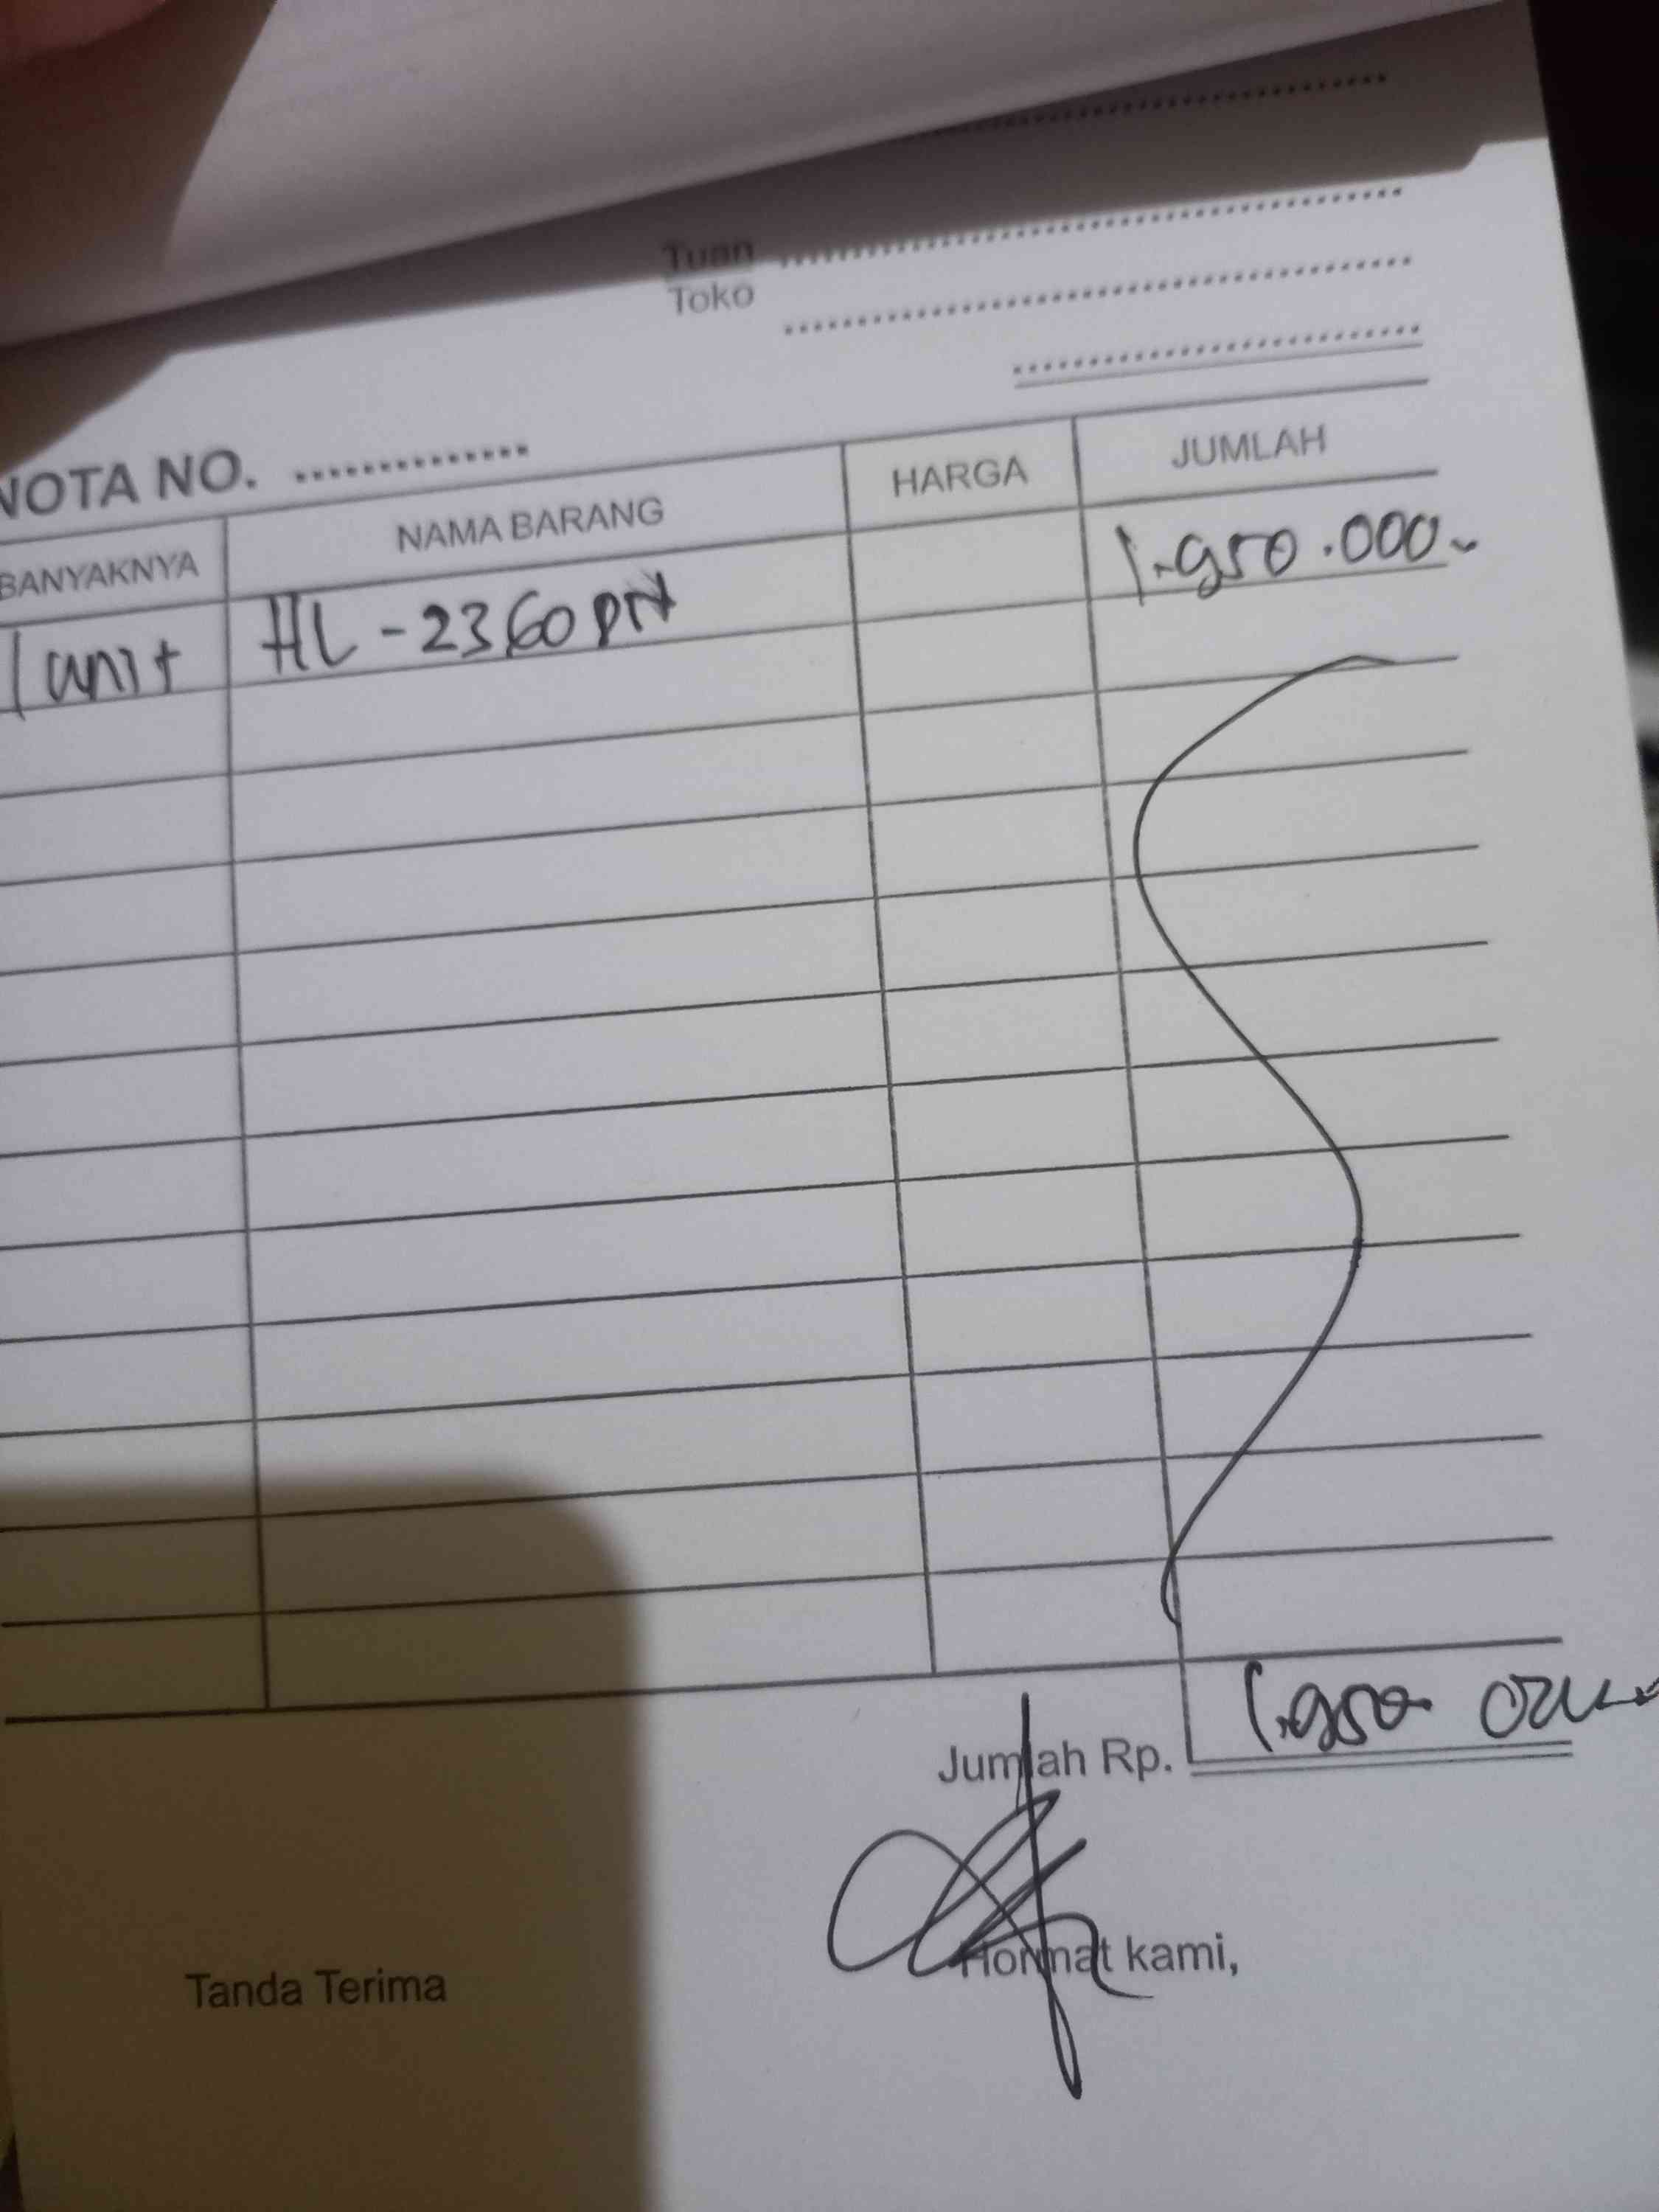 Tuan
Toko
NOTA NO.
BANYAKNYA NAMA BARANG HARGA JUMLAH
1 unit HL-2360DN 1.950.000
Jumlah Rp. 1.950.000
Tanda Terima Hormat kami,